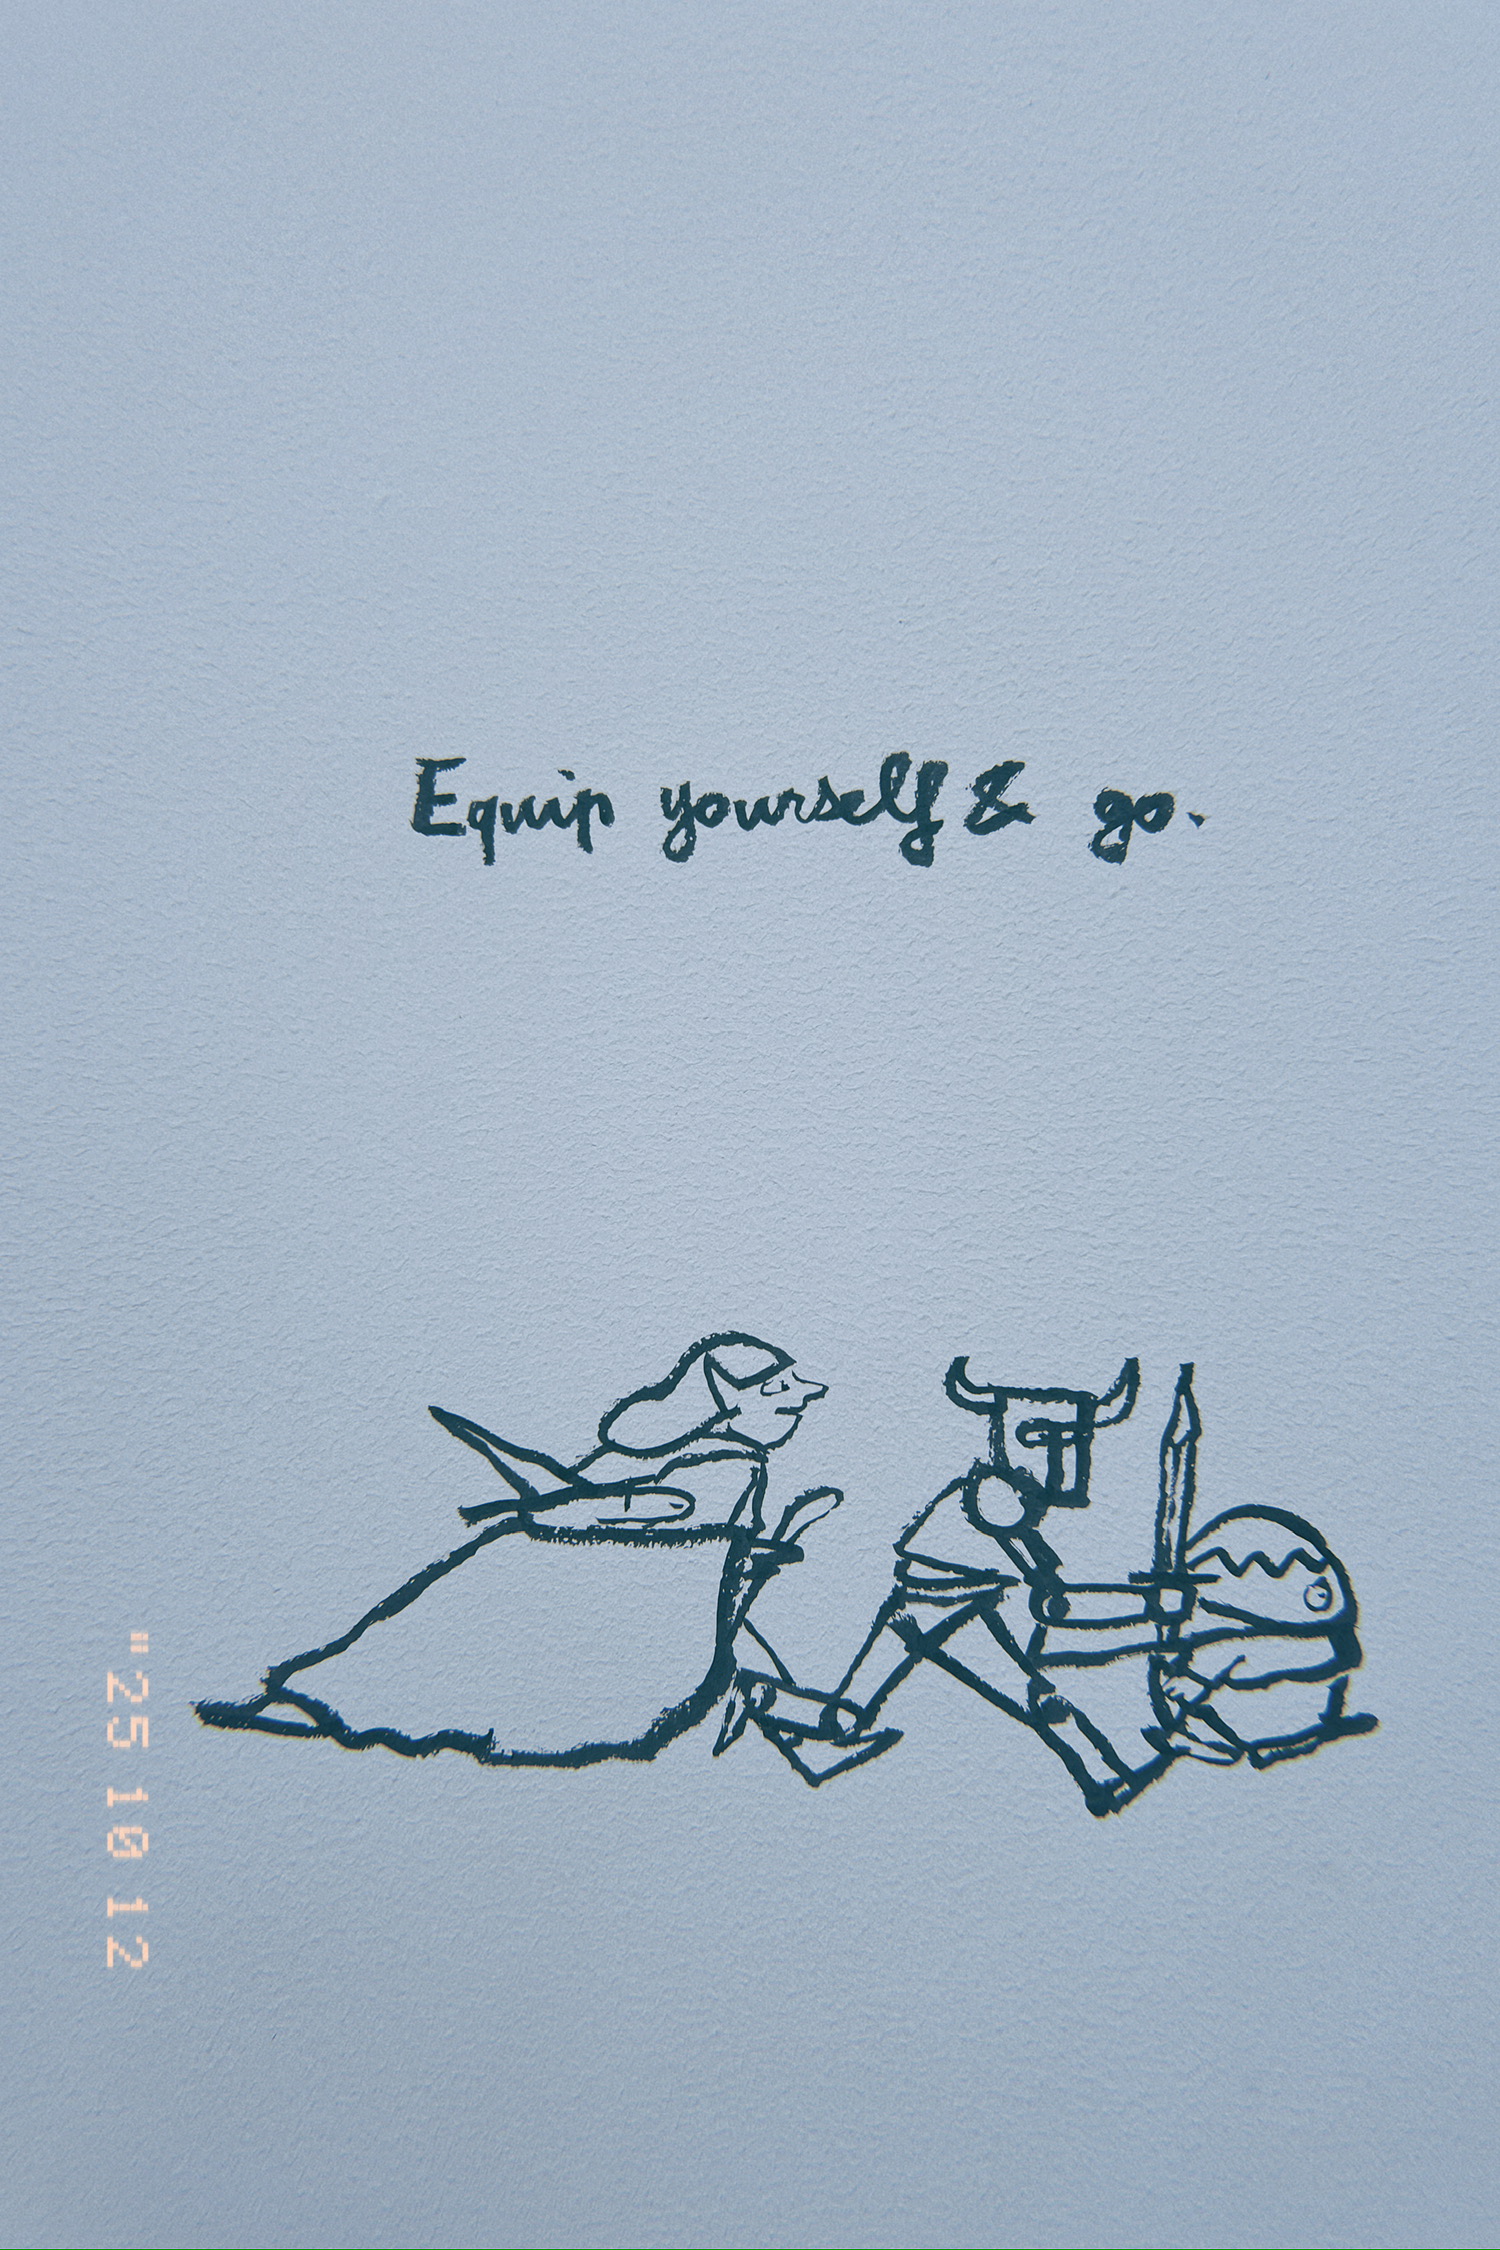 Equip yourself & go.
"25 10 12